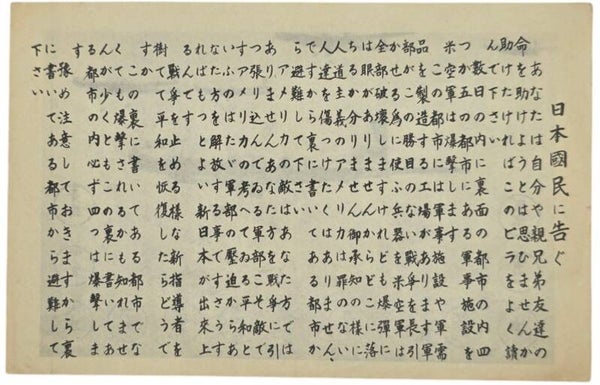 日本國民に告ぐ
あなたは自分や親兄弟友達の
命を助けようとは思ひませんか
助けたければこのビラをよく讀
んで下さい
数日の内に裏面の都市の内四
つか五つの都市にある軍事施設を
米空軍は爆撃します
この都市には軍事施設や軍需
品を製造する工場があります軍
部がこの勝目のない戰争を長引
かせる為に使ふ兵器を米空軍は
全部破壊しますけれども爆弾に
は眼がありませんからどこに落
ちるか分りません御承知の様に
人道主義のアメリカは罪のない
人達を傷つけたくはありません
ですから裏に書いてある都市か
ら避難して下さい
アメリカの敵はあなた方では
ありませんあなた方を戰争に引
つ張り込んでゐる軍部こそ敵で
すアメリカの考へてゐる平和と
いふのはたゞ軍部の壓迫からあ
なた方を解放する事ですそうす
ればもつとよい新日本が出來上
るんです
戰争を止める様な新指導者を
樹てて平和を恢復したらどうで
すか
この裏に書いてある都市でな
くても爆撃されるかも知れませ
んが少くともこの裏に書いてあ
る都市の内必ず四つは爆撃しま
す
豫め注意しておきますから裏
に書いてある都市から避難して
下さい